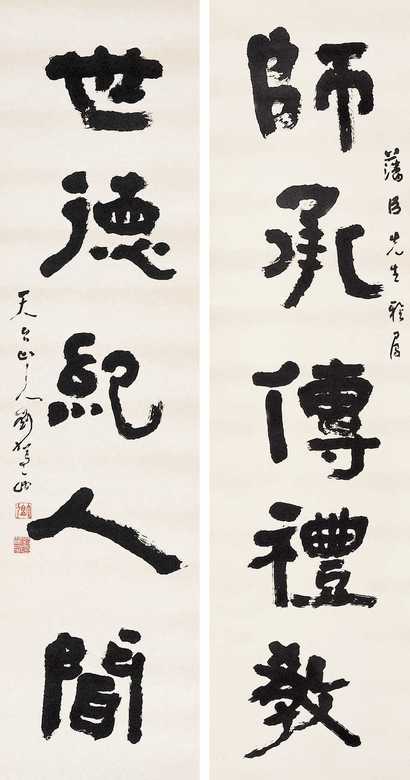 藩侯先生雅屬
師承傳禮教
世德紀人間
天台山人劉